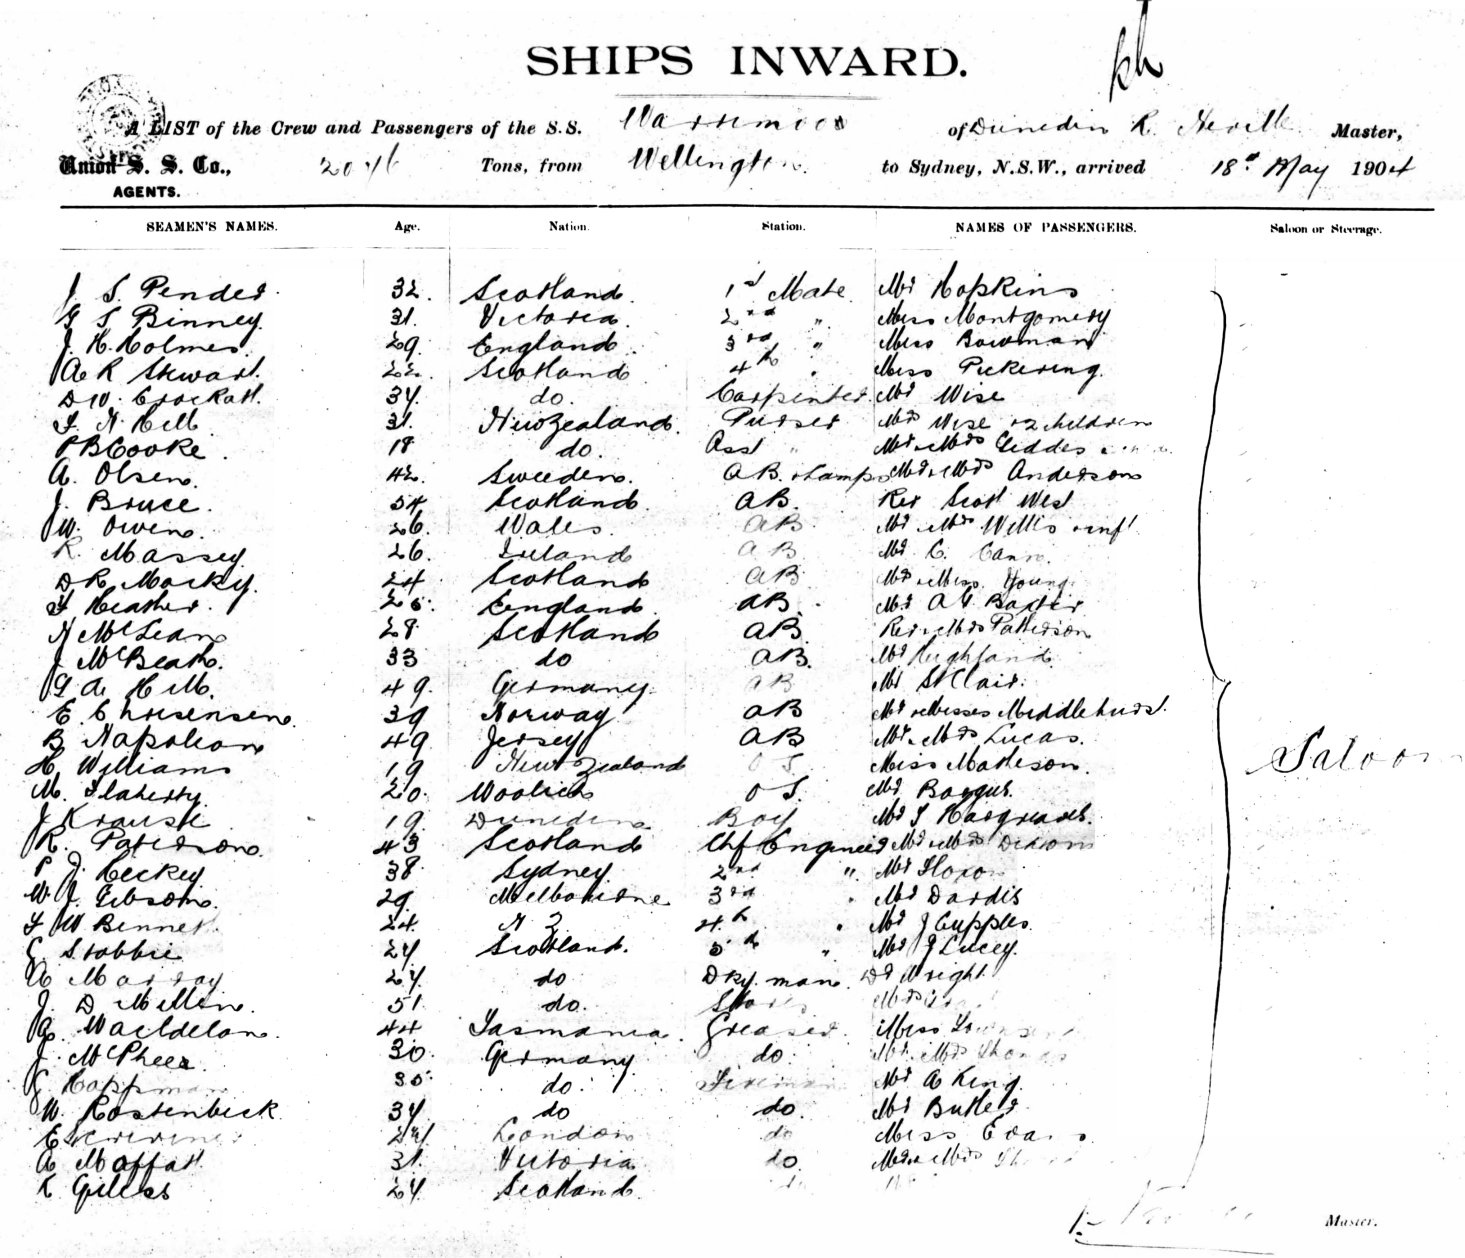 SHIPS INWARD.
A LIST of the Crew and Passengers of the S.S. Warrimoo of Dunedin R. Neville Master,
Union S. S. Co., 2076 Tons, from Wellington to Sydney, N.S.W., arrived 18th May 1904
AGENTS.
SEAMEN'S NAMES. Age. Nation. Station. NAMES OF PASSENGERS. Saloon or Steerage.
J. S. Pender 32. Scotland. 1st Mate Mr Hopkins
G S Binney. 31. Victoria. 2nd " Miss Montgomery
J. H. Holmes. 29. England. 3rd " Miss Bowman
A R Stewart. 22. Scotland 4th " Miss Pickering.
D W. Crockatt. 37. do. Carpenter. Mr Wise
F. N. Hill 31. New Zealand. Purser Mrs Wise & 2 children
P B Cooke. 18 do. Asst " Mr & Mrs Geddes
A. Olsen. 42. Sweden. A B. & Lamps Mr & Mrs Anderson
J. Bruce. 54 Scotland. A B. Rev Scott West
W. Owen. 26. Wales. A B Mr & Mrs Wells & inft
R. Massey. 26. Ireland A B. Mr C. Cann.
D R Macky. 24 Scotland A B Mrs & Miss Young
F Heather. 25. England. A B. Mr A G Baxter
N McLean 28 Scotland A B. Rev & Mrs Patterson
J McBeath. 33 do A B. Mr Highland.
G A Hill. 49. Germany. A B Mr St Clair.
E. Chrisensen. 39 Norway A B Mr & Misses Middlehurst.
B. Napoleon 49 Jersey A B Mr & Mrs Lucas.
H. Williams 19 New Zealand O S. Miss Matheson. Saloon
M. Flaherty. 20. Woolich O S. Mr Baygus.
J Krause 19 Dunedin Boy Mr J Hargreaves.
R. Paterson. 43 Scotland Chf Engineer Mr & Mrs Deacon
P J. Heckey 38. Sydney. 2nd " Mr
W. J. Gibson. 29. Melbourne 3rd " Mr Dardis
F W Bennet. 24. N Z 4th " Mr J Cupples.
G. Stobbie 27 Scotland. 5th " Mr J Lucey.
A Marray 27 do Dky. man. Dr Wright
J. D Millen. 51. do. Mrs
A. 44 Tasmania. Greaser. Miss
J. McPhee. 30. Germany do. Mr & Mrs Thomas
G. Happman 35. do. Fireman Mr A King.
W. Rostenbeck 37 do do. Mr Butler
E 27 London do Miss Evans
A Moffatt 31. Victoria do. Mr & Mrs
K Gilles 27. Scotland. do
Master.